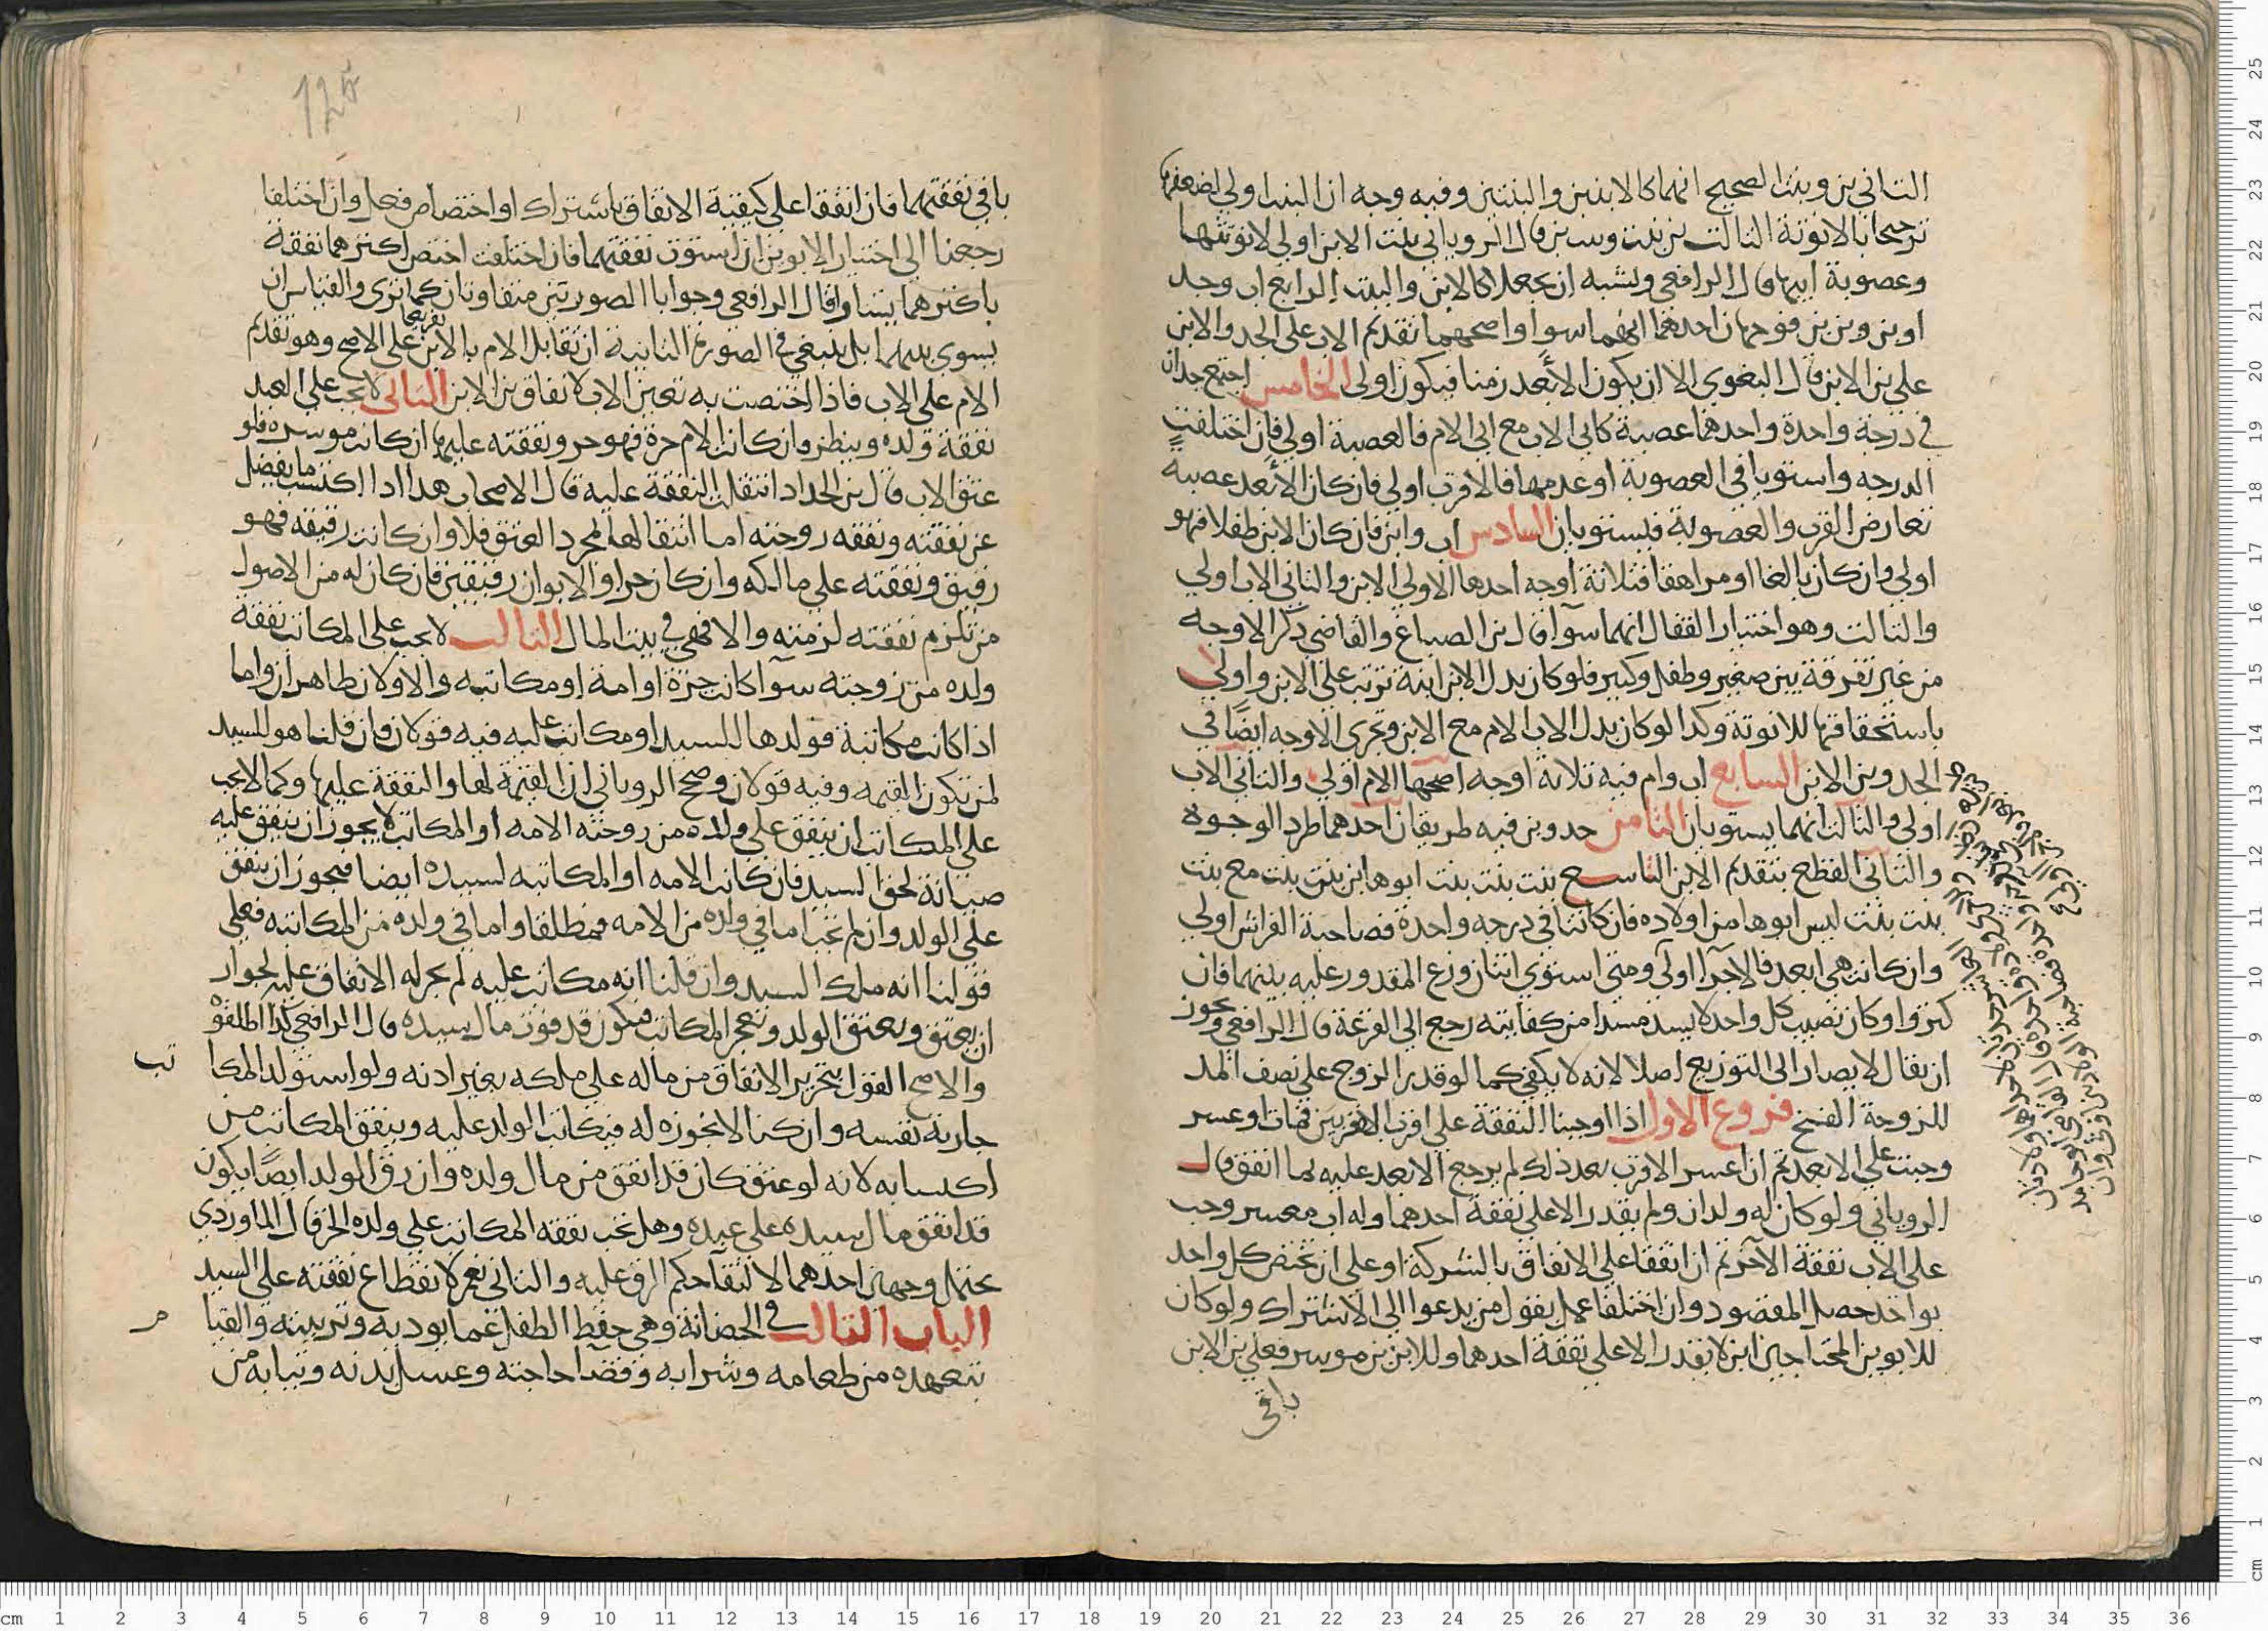 الثاني بن وبنت الصحيح انهما كالابنين والبنتين وفيه وجه ان البنت اولي لضعفها
ترجيحا بالانوثة الثالث بن بنت وبنت بن قال الروياني بنت الابن اولي لانوثتها
وعصوبة ابيها قال الرافعي ويشبه ان يجعلا كالابن والبنت الرابع اب وجد
او بن وبن بن فوجهان احدهما انهما سوا واصحهما تقديم الاب على الجد والابن
على بن الابن قال البغوي الا ان يكون الأبعد زمنا فيكون اولي الخامس اجتمع جدان
في درجة واحدة واحدهما عصبة كابي الاب مع ابي الام فالعصبة اولي فان اختلفت
الدرجه واستويا في العصوبة او عدمها فالاقرب اولي فان كان الأبعد عصبة
تعارض القرب والعصوبة فيستويان السادس اب وابن فان كان الابن طفلا فهو
اولي وان كان بالغا او مراهقا فثلاثة اوجه احدها الاولي الابن والثاني الاب اولي
والثالث وهو اختيار القفال انهما سوآ قال بن الصباغ والقاضي ذكرا الاوجه
من غير تفرقة بين صغير وطفل وكبير فلو كان بدل الابن ابنة ترتب على الابن واولي
باستحقاقها للانوثة وكذا لو كان بدل الاب الام مع الابن وتجري الاوجه ايضًا في
الجد وبن الابن السابع اب وام فيه ثلاثة اوجه اصحها الام اولي والثاني الاب
اولي والثالث انهما يستويان الثامن جد وبن فيه طريقان احدهما طرد الوجوه
والثاني القطع بتقديم الابن التاسع بنت بنت بنت ابوها ابن بنت بنت مع بنت
بنت بنت ليس ابوها من اولاده فان كانتا في درجه واحدة فصاحبة القرابتين اولي
وان كانت هي ابعد فالاخري اولي ومتي استوي اثنان وزع المقدور عليه بينهما فان
كثروا وكان نصيب كل واحد لا يسد مسدا من كفايته رجع الى القرعة قال الرافعي ويجوز
ان يقال لا يصار الى التوزيع اصلا لانه لا يكفي كما لو قدر الزوج على نصف المد
للزوجة الفسخ فروع الاول اذا اوجبنا النفقة على اقرب الاقربين فمات او عسر
وجبت على الابعد ثم ان اعسر الاقرب بعد ذلك لم يرجع الابعد عليه بما انفق قال
الروياني ولو كان له ولدان ولم يقدر الا على نفقة احدهما وله اب معسر وجب
على الاب نفقة الآخر ثم ان اتفقا على الانفاق بالشركة او على ان يختص كل واحد
بواحد حصل المقصود وان اختلفا عمل بقول من يدعوا الى الاشتراك ولو كان
للابوين المحتاجين ابن لا يقدر الا على نفقة احدهما وللابن بن موسر فعلى بن الابن
باقي
باقي نفقتهما فان اتفقا على كيفية الانفاق باشتراك او اختصاص فعل وان اختلفا
رجعنا الى اختيار الابوين ان استوت نفقتهما فان اختلفت اختص اكثرهما نفقة
باكثرهما يسارا قال الرافعي وجوابا الصورتين متفاوتان كما تري والقياس ان
يسوي بينهما بل ينبغي في الصورة الثانية ان تقابل الام بالابن تفريعا على الاصح وهو تقديم
الام على الاب فاذا اختصت به تعين الاب لانفاق بن الابن الثاني لا تجب على العبد
نفقة ولده وينظر فان كانت الام حرة فهو حر ونفقته عليها ان كانت موسره فلو
عتق الاب قال بن الحداد انتقلت النفقة عليه قال الاصحاب هذا اذا اكتسب ما يفضل
عن نفقته ونفقه زوجته اما انتقالها لمجرد العتق فلا وان كانت رقيقه فهو
رقيق ونفقته على مالكه وان كان حرا والابوان رقيقين فان كان له من الاصول
من تلزم نفقته لزمته والا فهي في بيت المال الثالث لا يجب على المكاتب نفقة
ولده من زوجته سوآ كانت حرة او امة او مكاتبه والاولان ظاهران واما
اذا كانت مكاتبة فولدها للسيد او مكاتب عليه فيه قولان فان قلنا هو للسيد
لمن تكون القيمه وفيه قولان وصحح الروياني ان القيمة لها والنفقة عليها وكما لا يجب
على المكاتب ان ينفق على ولده من زوجته الامه او المكاتبه لا يجوز ان ينفق عليه
صيانة لحق السيد فان كانت الامه او المكاتبه لسيده ايضا فيجوز ان ينفق
على الولد وان لم تجب اما في ولده من الامه فمطلقا واما في ولده من المكاتبه فعلى
قولنا انه ملك السيد وان قلنا انه مكاتب عليه لم يجز له الانفاق عليه لجواز
ان يعتق ويعتق الولد وتعجز المكاتب فيكون قد فوت مال سيده قال الرافعي كذا اطلقوه
والاصح القول بتحرير الانفاق من ماله على ملكه بغير اذنه ولو استولد المكا تب
جارية نفسه وان كنا لا نجوزه له فيكاتب الولد عليه وينفق المكاتب من
اكسابه لانه لو عتق كان قد انفق من مال ولده وان رق الولد ايضًا يكون
قد انفق مال سيده على عبده وهل تجب نفقه المكاتب على ولده الحر قال الماوردي
يحتمل وجهان احدهما لا لبقآ حكم الرق عليه والثاني نعم لانقطاع نفقته على السيد
الباب الثالث في الحضانة وهي حفظ الطفل عما يوذيه وتربيته والقيا م
بتعهده من طعامه وشرابه وقضآ حاجته وغسل بدنه وثيابه من